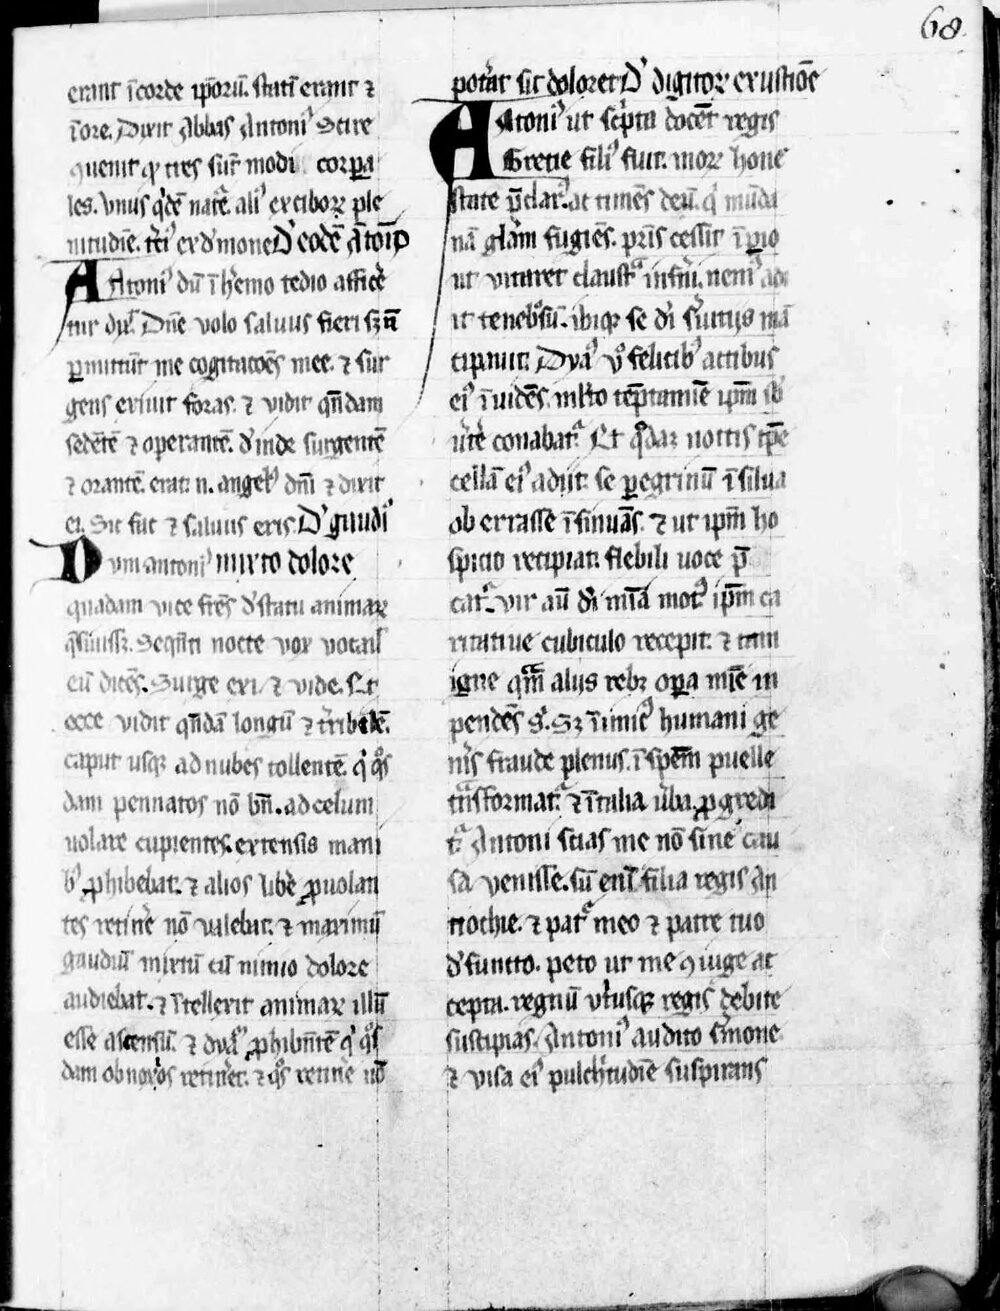 68
erant ī corde ip̄orū. statī erant ⁊
ī ore. Dixit Abbas Antoniꝰ Scire
ꝯuenit qͥ tres sūt modi corpa
les. Vnus qͥdē nat͛e. aliꝰ ex ciborꝝ ple
nitudīe. t͛ciꝰ ex d̓mone D̓ eodē Ātoīo
Antoniꝰ dū ī h̓emo tedio affic͛e
tur dix̄. Dn̄e volo saluus fieri sꝫ n̄
ꝑmittūt me cogitacōes mee. ⁊ sur
gens exiuit foras. ⁊ vidit qn̄dam
sedētē ⁊ operantē. d̓inde surgentē
⁊ orantē. erat. n. angelꝰ dn̄i ⁊ dixit
ei. Sic fac ⁊ saluus eris. D̓ gaudiͦ
Dum antoniꝰ mixto dolore
quadam vice fr̄es d̓ statu animaꝝ
q̄siuissꝫ. Seqn̄ti nocte vox vocauͥ
eū dicēs. Surge exi ⁊ vide. Et
ecce vidit qn̄dā longū ⁊ t͛ribilē.
caput usqꝫ ad nubes tollentē. qͥ qͦs
dam pennatos nō bn̄. ad celum
uolare cupientes. extensis mani
bꝰ ꝓhibebat. ⁊ alios lib͛e ꝓuolan
tes retin͛e nō valebat. ⁊ maximū
gaudiū mixtū cū nimio dolore
audiebat. ⁊ ītellexit animaꝝ illū
esse ascensū. ⁊ dyaꝰ ꝓhibn̄tē qͥ qͦs
dam ob noxͦos retin͛et. ⁊ qͦs retin͛e nō
pot͛at sic doloret D̓ digitoꝝ exustiōe
Antoniꝰ ut sc͛ptā docēt regis
Gretie filiꝰ fuit. moꝝ hone
state p̄clarꝰ. ac timēs deū. qͥ mūda
nā gl͛am fugiēs. pr̄is cessit īꝑio
ut vitaret claustᵃ ī nem
it tenebͦsū. ibiqꝫ se d̓i s͛uitijs mā
cipauit. Dyaꝰ v͛o felicibꝰ actibus
eiꝰ īuidēs. ml̓to tēptamīe ip̄m sb̓
u͛t͛e conabatᷣ. Et qͦdaꝫ noctis tp̄e
cellā eiꝰ adijt. se ꝑegrinū ī silua
ob errasse īsinuās. ⁊ ut ip̄m ho
spicio recipiat. flebili uoce p̄
catᷣ. vir aū d̓i mīa motꝰ ip̄m ca
ritatiue cubiculo recepit. ⁊ tam
igne qᷓm alijs rebꝫ oꝑa mīe in
pendēs gͣ. Sꝫ īimicꝰ humani ge
n͛is fraude plenus. ī spēm puelle
tᷓnsformatᷣ. ⁊ ī talia u͛ba ꝓgredi
tᷣ Antoni scias me nō sine cau
sa venisse. sū enī filia regis An
tiochie. ⁊ patͤ meo ⁊ patre tuo
d̓functo. peto ut me ꝯiuge ac
cepta. regnū vt͛iusqꝫ regis debite
suscipias. Antoniꝰ audito s͛mone
⁊ visa eiꝰ pulch͛tudīe suspirans